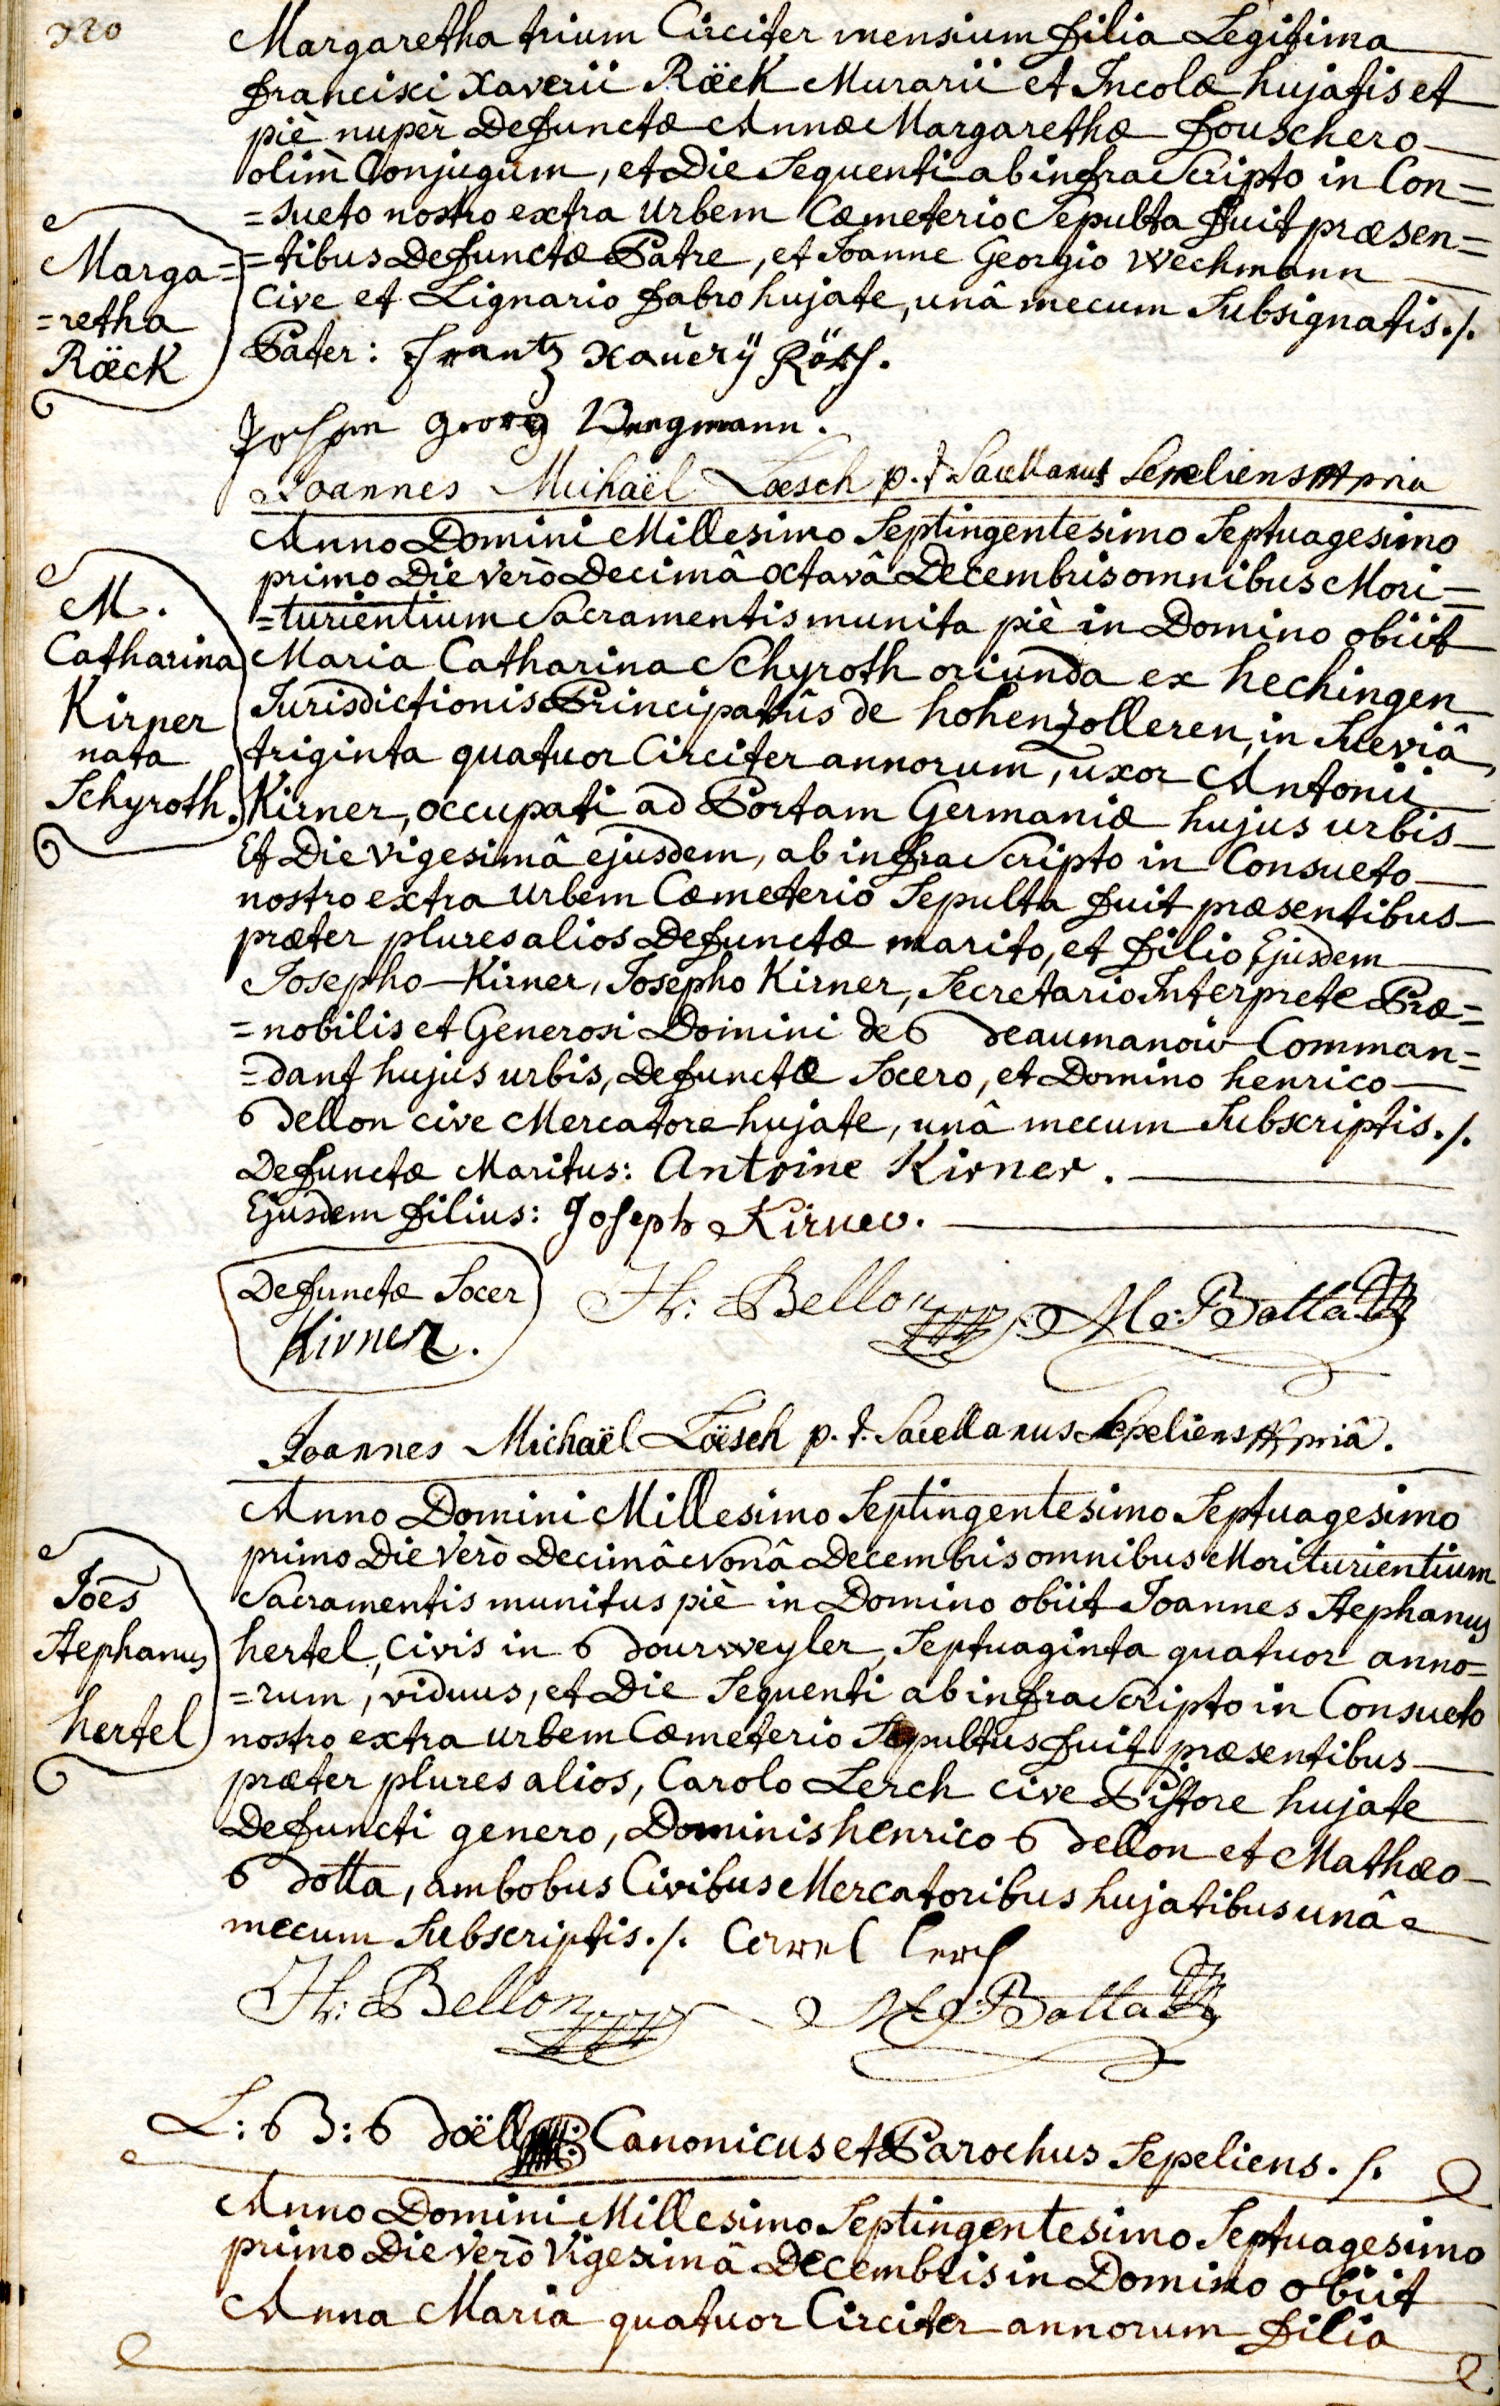 320
Margaretha trium Circiter mensium filia Legitima
francisci Xaverii Röeck Murarii et Incolæ hujatis et
piè nupèr Defunctæ Annæ Margarethæ fouschero
olim Conjugum, et Die Sequenti ab infra Scripto in Con=
=sueto nostro extra urbem Cœmeterio Sepulta fuit præsen=
=tibus Defunctæ Patre, et Joanne Georgio Wechmann
Cive et Lignario fabro hujate, unâ mecum Subsignatis./.
Marga=
=retha
Röeck
Pater: Frantz Xavery Röck.
Johann Georg Wergmann.
Joannes Michaël Lœsch p.t. Sacellanus Sepeliens mpria
Anno Domini Millesimo Septingentesimo Septuagesimo
primo Die verò Decimâ octavâ Decembris omnibus Mori=
=turientium Sacramentis munita piè in Domino obiit
Maria Catharina Schyroth oriunda ex hechingen
Jurisdictionis Principatûs de hohenzolleren, in Sueviâ,
triginta quatuor Circiter annorum, uxor Antonii
Kirner, occupati ad Portam Germaniæ hujus urbis
Et Die vigesimâ ejusdem, ab infra Scripto in Consueto
nostro extra urbem Cœmeterio Sepulta fuit præsentibus
præter plures alios Defunctæ marito, et filio Ejusdem
Josepho Kirner, Josepho Kirner, Secretario Interprete Præ=
=nobilis et Generosi Domini de Beaumanoir Comman=
=dant hujus urbis, Defunctæ Socero, et Domino henrico
Bellon cive Mercatore hujate, unâ mecum Subscriptis./.
M.
Catharina
Kirner
nata
Schyroth.
Defunctæ Maritus: Antoine Kirner.
Ejusdem filius: Joseph Kirner.
Defunctæ Socer
Kirner.
H: Bellon
M: Botta
Joannes Michaël Löesch p.t. Sacellanus Sepeliens mpriâ.
Anno Domini Millesimo Septingentesimo Septuagesimo
primo Die verò Decimâ Nonâ Decembris omnibus Moriturientium
Sacramentis munitus piè in Domino obiit Joannes Stephanus
hertel, Civis in Bourweyler, Septuaginta quatuor anno=
=rum, viduus, et Die Sequenti ab infra Scripto in Consueto
nostro extra urbem Cœmeterio Sepultus fuit præsentibus
præter plures alios, Carolo Lerch cive Pistore hujate
Defuncti genero, Dominis henrico Bellon et Mathæo
Botta, ambobus Civibus Mercatoribus hujatibus unâ
mecum Subscriptis./. Carrel Lerch
Joes
Stephanus
hertel
H: Bellon
M: Botta
L: B: Boëll Canonicus et Parochus Sepeliens./.
Anno Domini Millesimo Septingentesimo Septuagesimo
primo Die verò Vigesimâ Decembris in Domino obiit
Anna Maria quatuor Circiter annorum filia